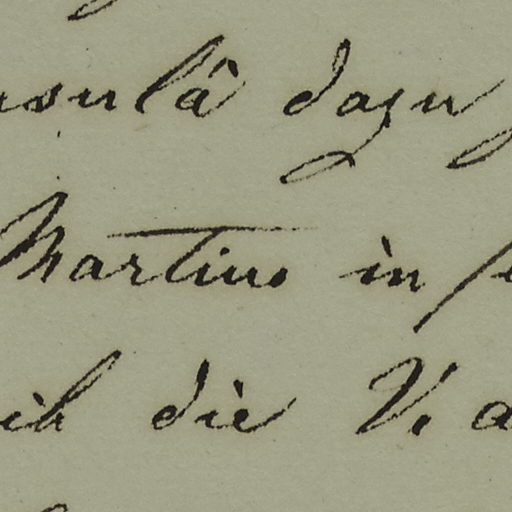 nsulâ dazu
Martius in
ich die V. a